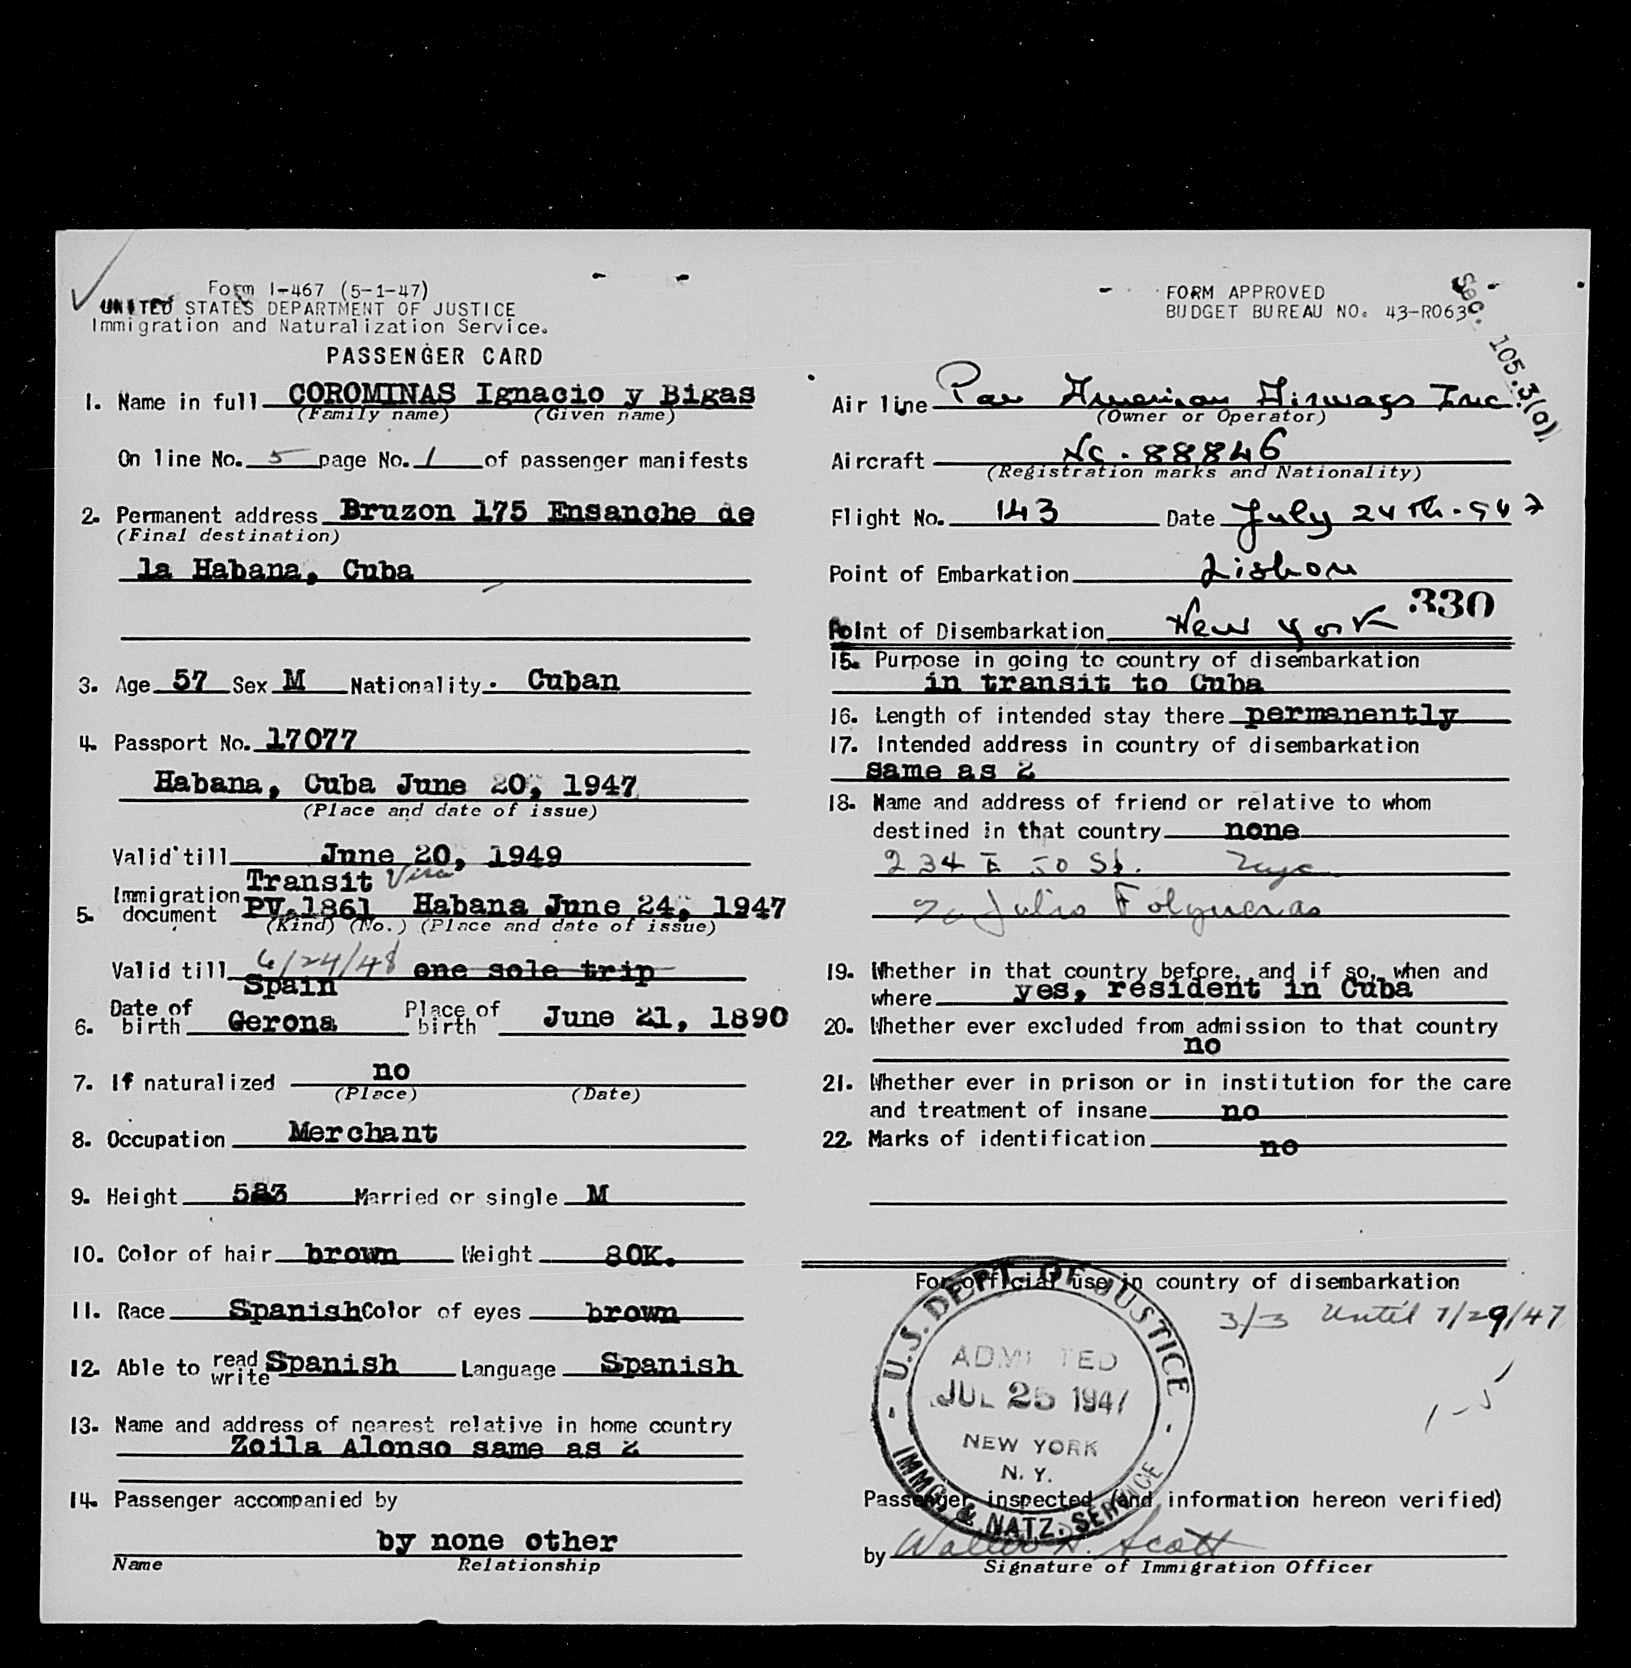 Form I-467 (5-1-47)
UNITED STATES DEPARTMENT OF JUSTICE
Immigration and Naturalization Service.
PASSENGER CARD
1. Name in full COROMINAS Ignacio y Bigas
(Family name) (Given name)
On line No. 5 page No. 1 of passenger manifests
2. Permanent address Bruzon 175 Ensanche de
(Final destination)
la Habana, Cuba
3. Age 57 Sex M Nationality Cuban
4. Passport No. 17077
Habana, Cuba June 20, 1947
(Place and date of issue)
Valid till June 20, 1949
Transit Visa
5. Immigration document PV.1861 Habana June 24, 1947
(Kind) (No.) (Place and date of issue)
Valid till 6/24/48 one sole trip
Spain
6. Date of birth Gerona Place of birth June 21, 1890
7. If naturalized no
(Place) (Date)
8. Occupation Merchant
9. Height Married or single M
10. Color of hair brown Weight 80K.
11. Race Spanish Color of eyes brown
12. Able to read write Spanish Language Spanish
13. Name and address of nearest relative in home country
Zoila Alonso same as 2
14. Passenger accompanied by
by none other
Name Relationship
FORM APPROVED
BUDGET BUREAU NO. 43-R063
Sec. 105.3(a)
Air line Pan American Airways Inc.
(Owner or Operator)
Aircraft NC-88846
(Registration marks and Nationality)
Flight No. 143 Date July 24th-947
Point of Embarkation Lisbon
330
Point of Disembarkation New York
15. Purpose in going to country of disembarkation
in transit to Cuba
16. Length of intended stay there permanently
17. Intended address in country of disembarkation
same as 2
18. Name and address of friend or relative to whom
destined in that country none
234 E 50 St. Nyc
c/o Julio Folgueras
19. Whether in that country before, and if so, when and
where yes, resident in Cuba
20. Whether ever excluded from admission to that country
no
21. Whether ever in prison or in institution for the care
and treatment of insane no
22. Marks of identification no
For official use in country of disembarkation
3/3 Until 7/29/47
1-5
U.S. DEPT. OF JUSTICE
ADMITTED
JUL 25 1947
NEW YORK
N. Y.
IMMG. & NATZ. SERVICE
Passenger inspected (and information hereon verified)
by Walter D. Scott
Signature of Immigration Officer